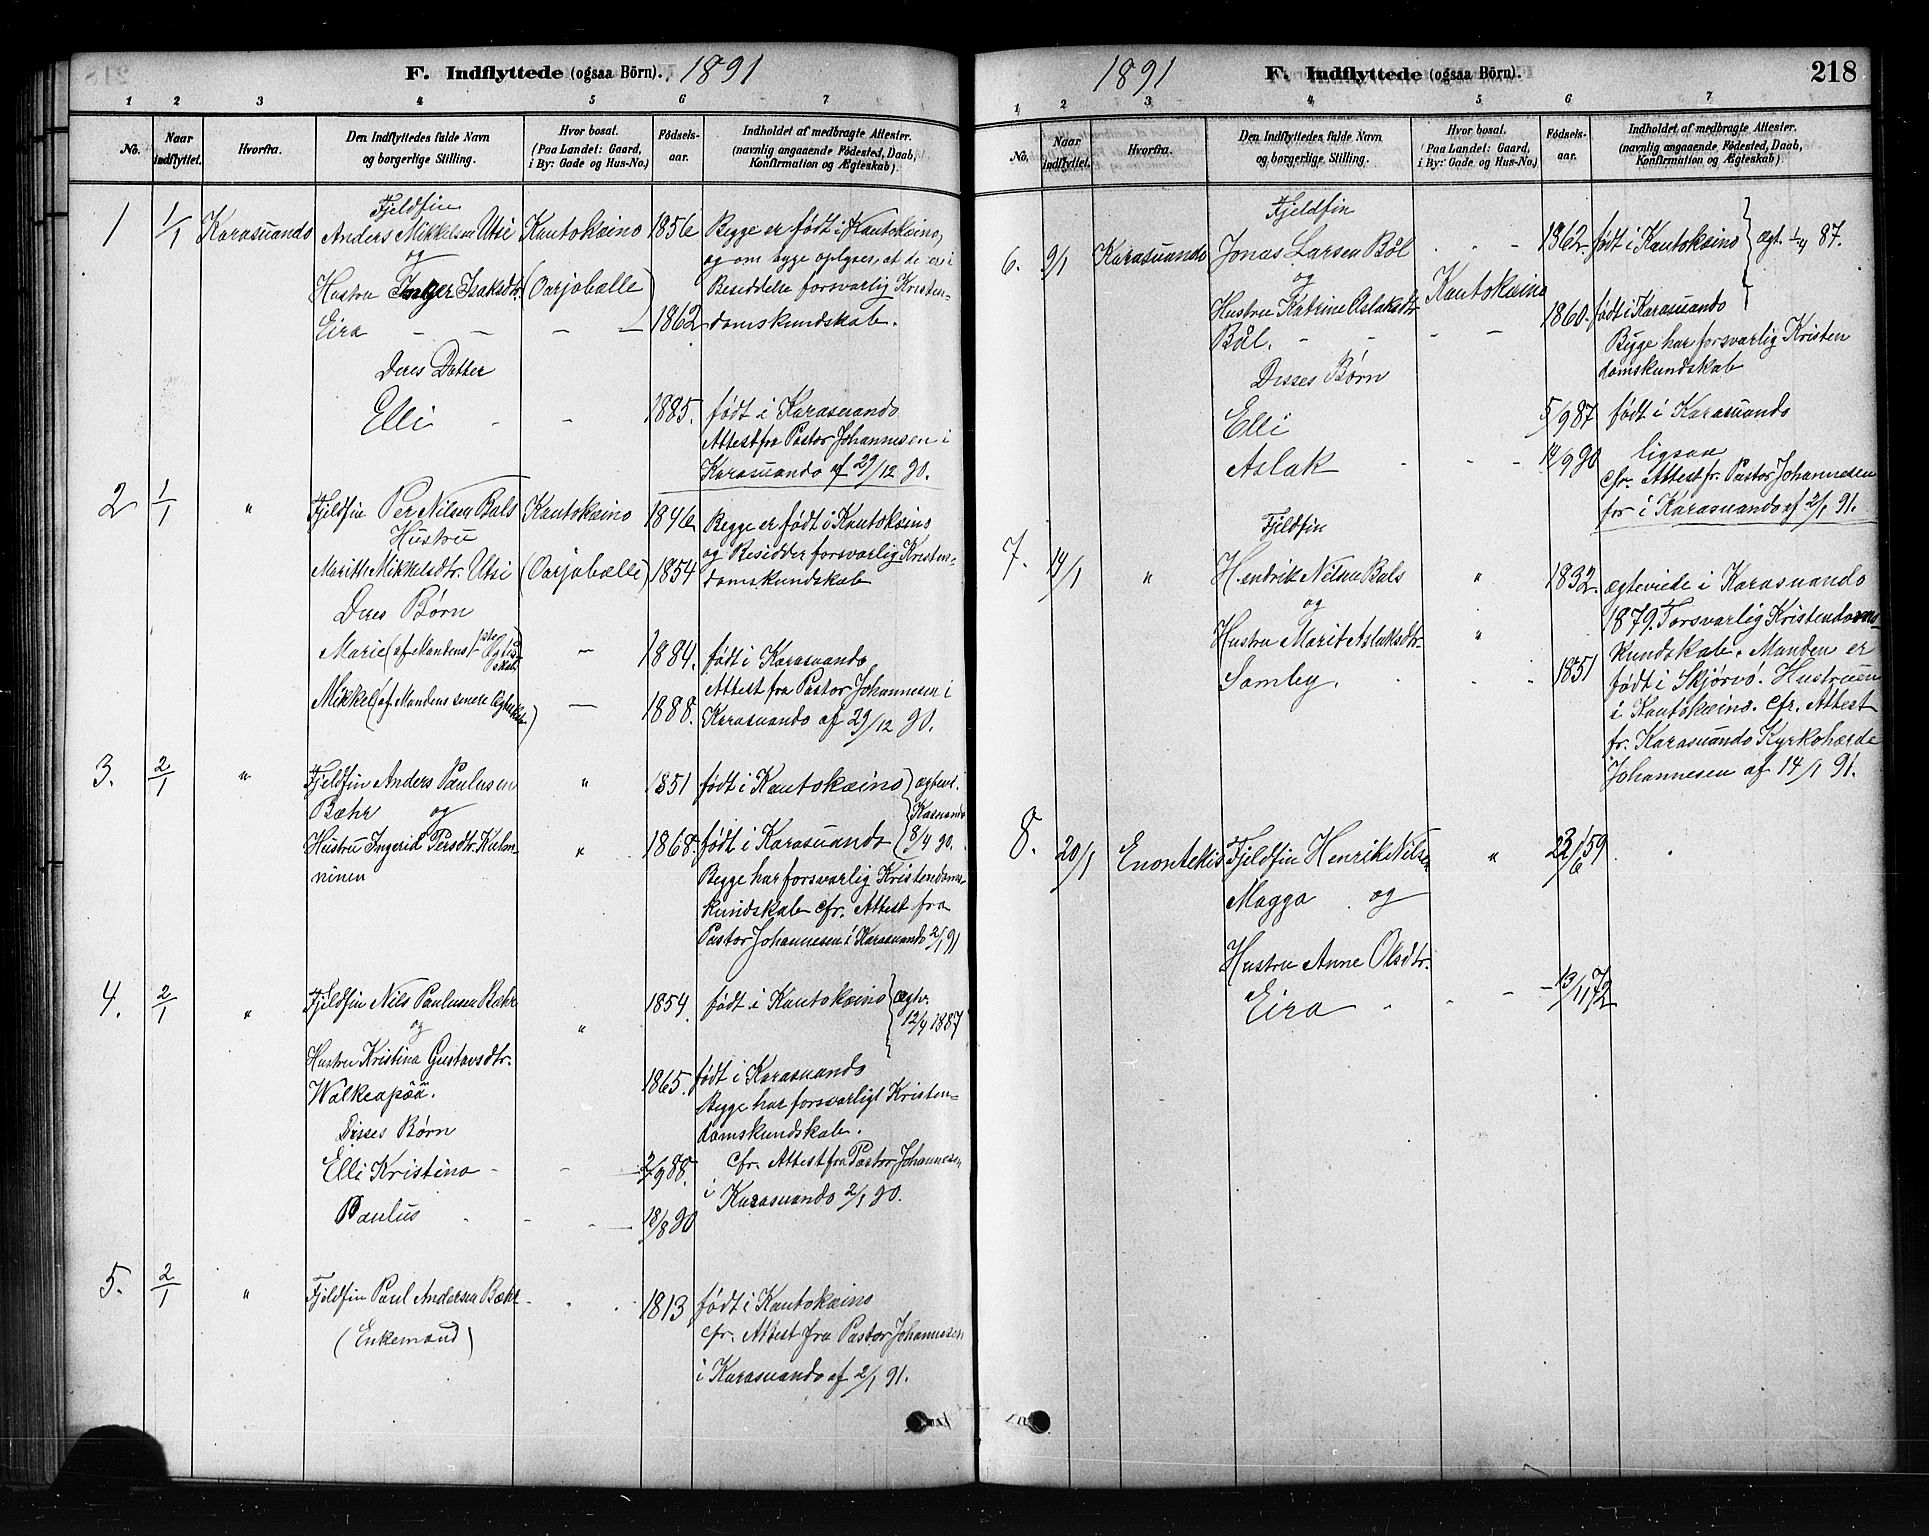 F. Indflyttede (ogsaa Börn). 1891
1 2 3 4 5 6 7
No. Naar indflyttet. Hvorfra. Den Indflyttedes fulde Navn og borgerlige Stilling. Hvor bosat. (Paa Landet: Gaard, i By: Gade og Hus-No.) Fødsels-aar. Indholdet af medbragte Attester. (navnlig angaaende Fødested, Daab, Konfirmation og Ægteskab).
Fjeldfin
1 1/1 Karasuando Anders Mikkelsen Utsi Kautokeino 1856 Begge er født i Kautokeino,
og og om begge oplyses, at de er i
Hustru Inger Isaksdtr. (Oarjobælle) Besiddelse forsvarlig Kristen-
Eira — — — — 1862 domskundskab.
Deres Datter
Elli - - 1885. født i Karasuando
Attest fra Pastor Johannesen i
Karasuando af 29/12 90.
2 1/1 " Fjeldfin Per Nilsen Bals Kautokeino 1846 Begge er født i Kautokeino
Hustru og Besidder forsvarlig Kristen-
Marith Mikkelsdtr. Utsi (Oarjobælle) 1854 domskundskab
Deres Børn
Marie (af Mandens 1ste Ægteskab) — 1884. født i Karasuando
Attest fra Pastor Johannesen i
Mikkel (af Mandens senere Ægteskab) — 1888. Karasuando af 29/12 90.
3. 2/1 " Fjeldfin Anders Paulusen " 1851 født i Kautokeino ægtev. i
Bæhr og Karasuando
Hustru Ingerid Persdtr. Kulm- " 1868. født i Karasuando 8/4 90.
ninen Begge har forsvarlig Kristendoms-
kundskab cfr. Attest fra
Pastor Johannesen i Karasuando 2/1 91
4. 2/1 " Fjeldfin Nils Paulusen Bæhr " 1854. født i Kautokeino Ægtv.
og 12/4 1887
Hustru Kristina Gustavsdtr.
Walkeapää. 1865. født i Karasuando
Begge har forsvarligt Kristen-
Disses Børn domskundskab.
Elli Kristina - - 2/9 88. cfr. Attest fra Pastor Johannesen
i Karasuando 2/1 90.
Paulus - - 18/8 90
5. 2/1 " Fjeldfin Paul Andersen Bæhr - 1813 født i Kautokeino
(Enkemand) cfr. Attest fra Pastor Johannesen
i Karasuando af 2/1 91.
1891 F. Indflyttede (ogsaa Börn). 218
1 2 3 4 5 6 7
No. Naar indflyttet. Hvorfra. Den Indflyttedes fulde Navn og borgerlige Stilling. Hvor bosat. (Paa Landet: Gaard, i By: Gade og Hus-No.) Fødsels-aar. Indholdet af medbragte Attester. (navnlig angaaende Fødested, Daab, Konfirmation og Ægteskab).
Fjeldfin
6. 9/1 Karasuando Jonas Larsen Bål - - - 1862. født i Kautokeino Ægt. 1/4 87.
og
Hustru Katrine Aslaksdtr. Kautokeino
Bål. - - - - 1860. født i Karasuando
Begge har forsvarlig Kristen
Disses Børn domskundskab
Elli 5/9 87 født i Karasuando
Aslak - - - 14/9 90 ligsaa
cfr. Attest fr. Pastor Johannesen
for i Karasuando af 2/1 91.
Fjeldfin
7. 14/1 " Hendrik Nilsen Bals " 1832. ægteviede i Karasuando
og 1879. Forsvarlig Kristendoms-
Hustru Marit Aslaksdtr. " kundskab. Manden er
Somby. - - 1851 født i Skjørvø. Hustruen
i Kautokeino. cfr. Attest
fr. Karasuando Kyrkoherde
Johannesen af 14/1 91.
8. 20/1 Enontekis Fjeldfin Henrik Nilsen " 22/6 59
Magga og
Hustru Anne Olsdtr.
Eira - - - - 13/11 72